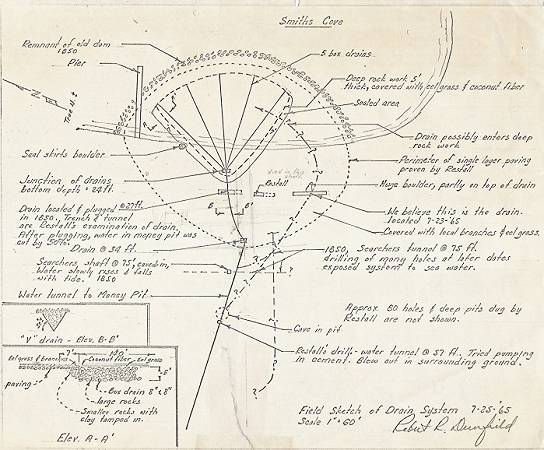 Smiths Cove
Remnant of old dam
1850
Pier
5 box drains
Deep rock work 5'
thick, covered with eel grass & coconut fiber
Sealed area
True N.
Drain possibly enters deep
rock work
Seal skirts boulder
Perimeter of single layer paving
proven by Restall
Junction of drains
bottom depth = 24 ft.
Restall
Huge boulder, partly on top of drain
Drain located & plugged @ 27 ft.
in 1850. Trench & tunnel
are Restall's examination of drain.
After plugging, water in money pit was
cut by 50%.
B B'
We believe this is the drain.
located 7-23-'65
Covered with local branches & eel grass.
Drain @ 34 ft.
Searchers, shaft @ 75', caved in,
Water slowly rises & falls
with tide. 1850
1850, Searchers tunnel @ 75 ft.
drilling of many holes at later dates
exposed system to sea water.
Water tunnel to Money Pit
Approx. 80 holes & deep pits dug by
Restall are not shown.
Cave in pit
"V" drain - Elev. B-B'
Restall's drill - water tunnel @ 57 ft. Tried pumping
in cement. Blew out in surrounding ground.
Eel grass & branches
Coconut fiber
Eel grass
paving
5'
Box drain 8" x 8"
large rocks
Smaller rocks with
clay tamped in.
Elev. A-A'
Field Sketch of Drain System 7-25-'65
Scale 1" = 60'
Robert R. Dunfield